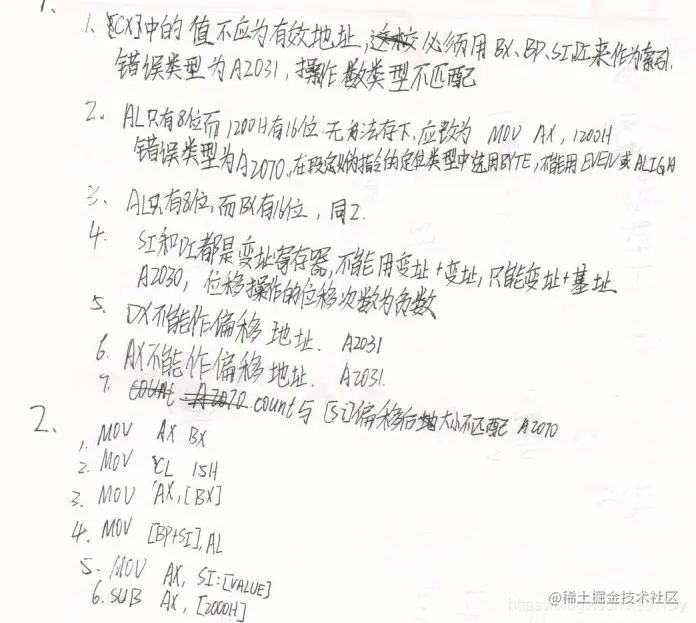 1.
1. [CX]中的值不应为有效地址,必须用BX、BP、SI、DI来作为索引.
错误类型为A2031,操作数类型不匹配
2. AL只有8位而1200H有16位.无法存下.应改为 MOV AX, 1200H
错误类型为A2070.在段定义伪指令的定位类型中选用BYTE,不能用EVEN或ALIGN
3. AL只有8位,而BX有16位,同2.
4. SI和DI都是变址寄存器,不能用变址+变址,只能变址+基址
A2030,位移操作的位移次数为负数
5. DX不能作偏移地址. A2031
6. AX不能作偏移地址. A2031.
7. count与[SI]偏移后大小不匹配 A2070
2.
1. MOV AX BX
2. MOV CL 15H
3. MOV AX,[BX]
4. MOV [BP+SI],AL
5. MOV AX, SI:[VALUE]
6. SUB AX, [2000H]
@稀土掘金技术社区